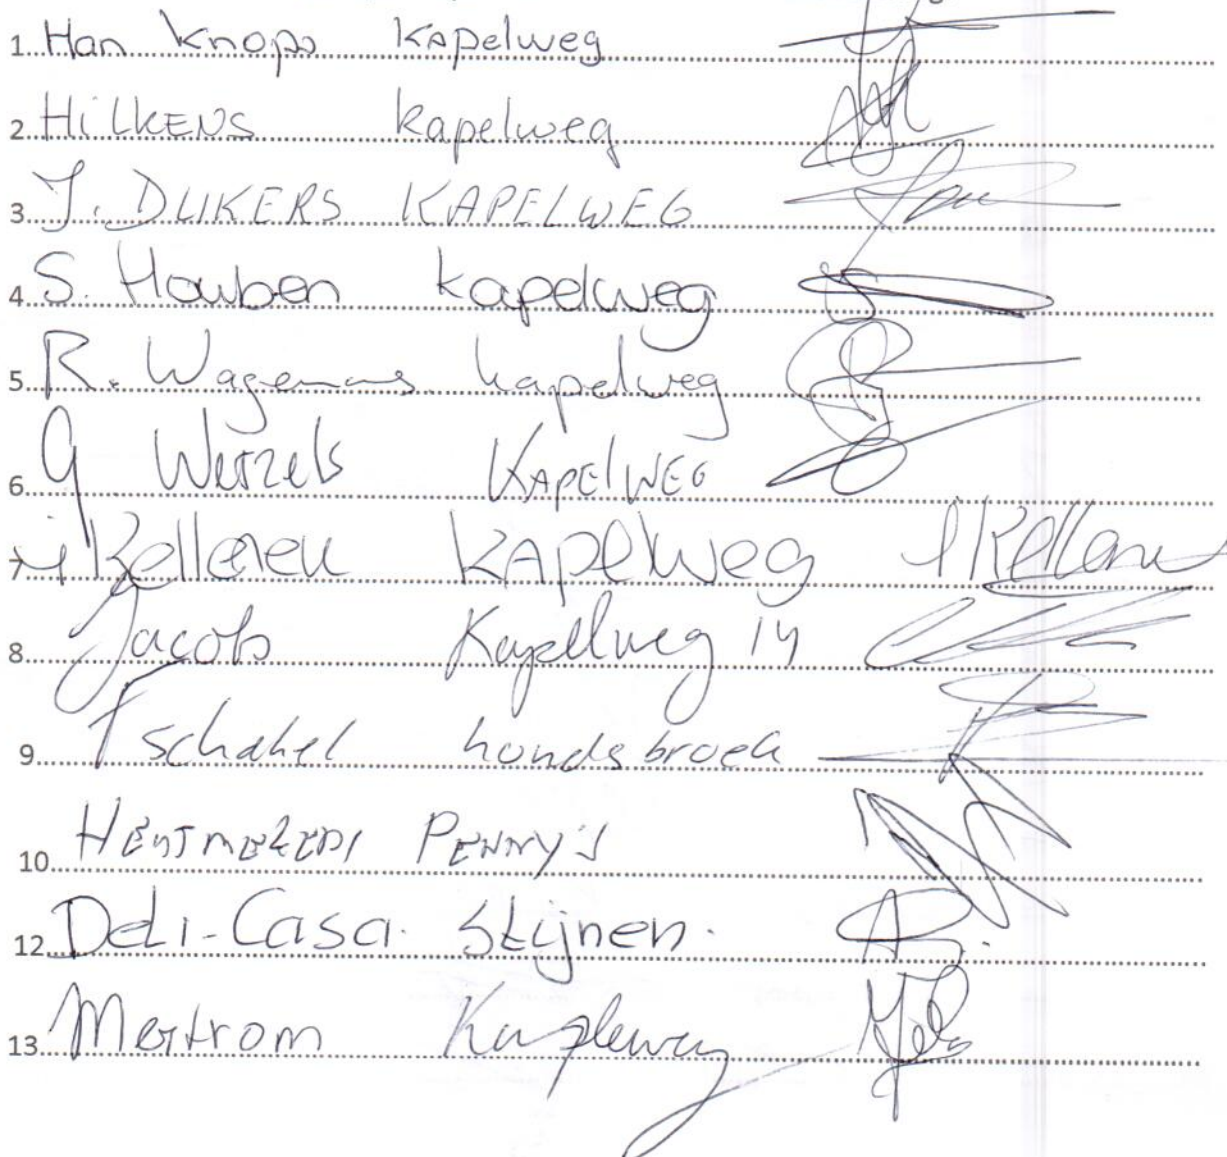 1. Han Knops Kapelweg
2. HilkENS kapelweg
3. J. DIJKERS KAPELWEG
4. S. Houben kapelweg
5. R. Wagemans kapelweg
6. G Wetzels KAPELWEG
7. Kelleren KAPELweg
8. Jacobs Kapellweg 14
9. schakel hondsbroek
10. PENNY'S
12. Deli-Casa. Stijnen.
13. Mertrom Kapleweg